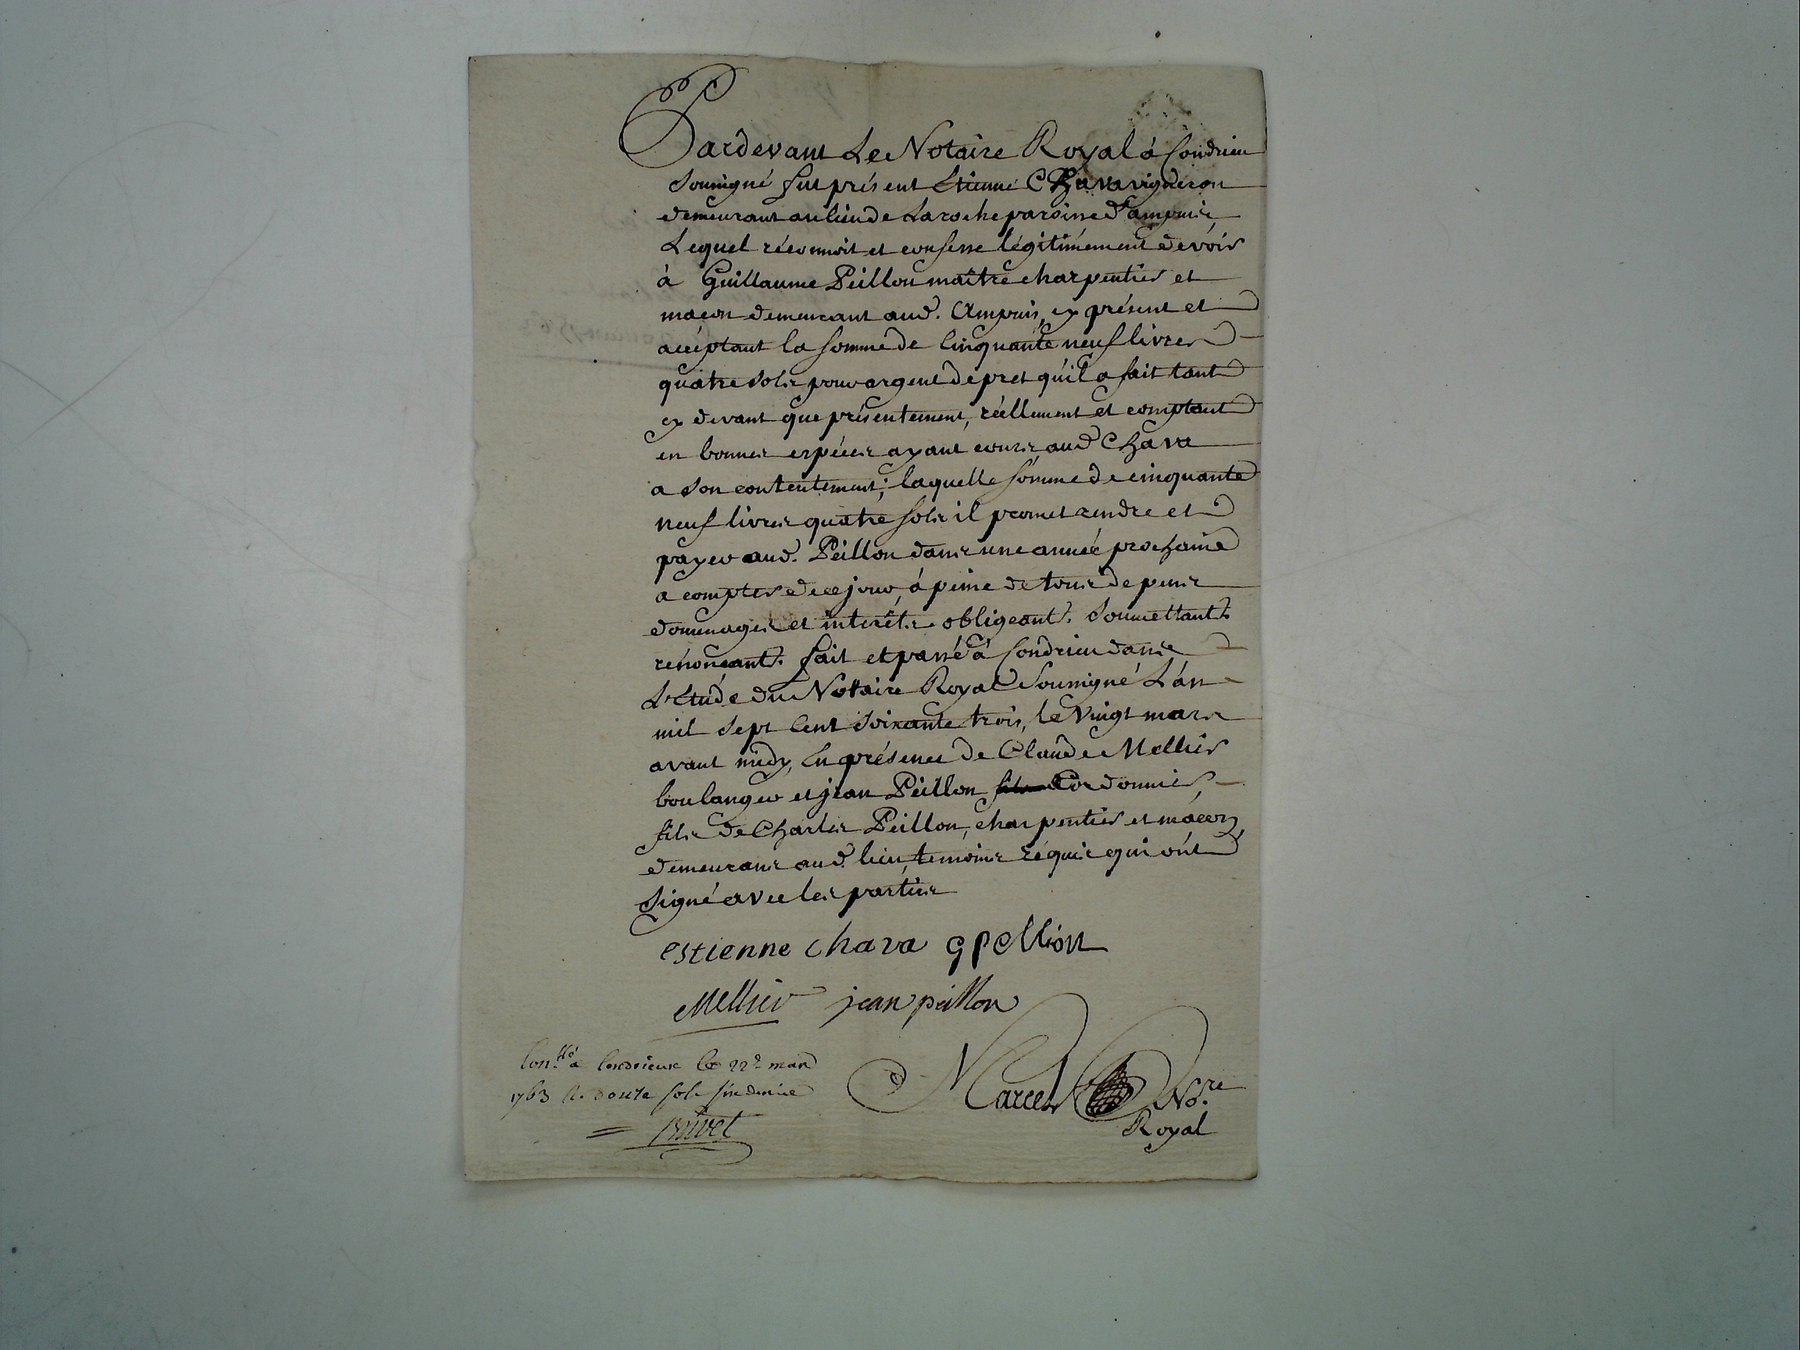 Pardevant Le Notaire Royal à Condrieu
soussigné fut présent Etienne Chava vigneron
demeurant au lieu de Laroche paroisse d'ampuis,
Lequel réconnoit et confesse légitimément devoir
à Guillaume Peillon maître charpentier et
macon demeurant aud. Ampuis, cy présent et
accéptant la somme de Cinquante neuf livres
quatre sols pour argent de pret qu'il a fait tant
cy devant que présentement, réellement et comptant
en bonnes espéces ayant cours, aud Chava
a son contentement; laquelle somme de cinquante
neuf livres quatre sols il promet rendre et
payer aud. Peillon dans une année prochaine
a compter de ce jour, à peine de tous depens
dommages et interêts obligeant. Soumettant.
rénonçant. fait et passé à Condrieu dans
L'Etude du Notaire Royal Soussigné L'an
mil sept Cent soixante trois, le Vingt mars
avant midy, En présence de Claude Mellier
boulanger et jean Peillon Cordonnier,
fils de Charles Peillon, charpentier et macon,
demeurans aud. lieu, temoins réquis qui ont
Signé avec les parties
estienne chava gpellion
Mellier jean peillon
Con.llé a Condrieux le 22e mars
1763 R. douze sols six denies
Marcel No.re
Royal